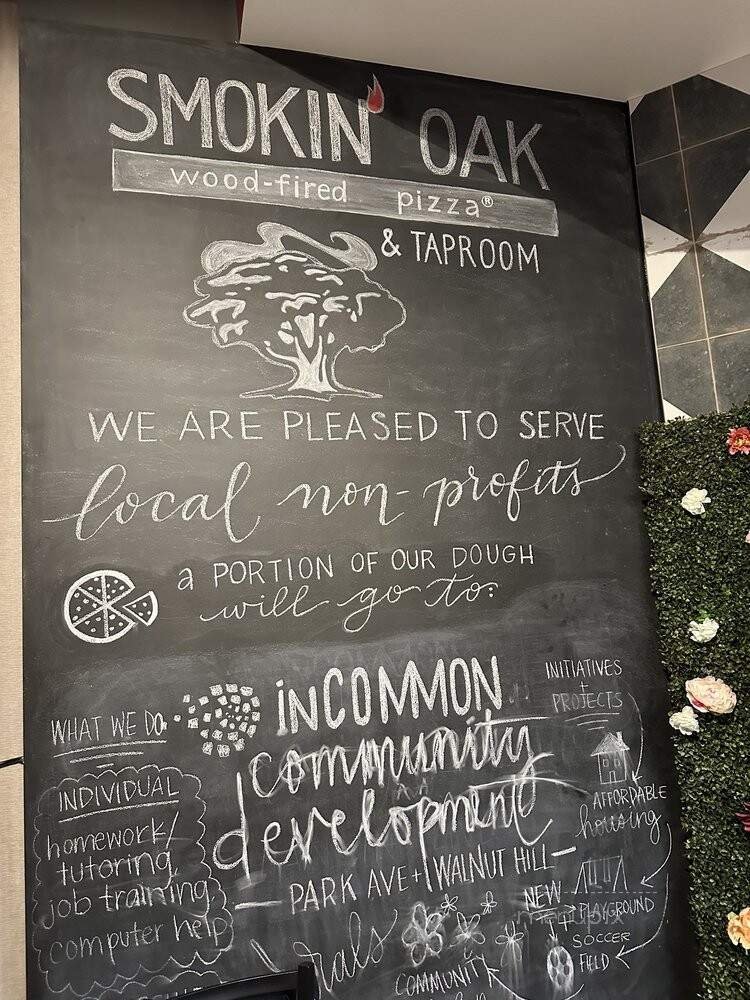 SMOKIN' OAK
wood-fired pizza®
& TAPROOM
WE ARE PLEASED TO SERVE
local non-profits
a PORTION OF OUR DOUGH
will go to:
WHAT WE DO
inCOMMON
community
development
PARK AVE + WALNUT HILL
INITIATIVES
+
PROJECTS
AFFORDABLE
housing
NEW
PLAYGROUND
SOCCER
FIELD
INDIVIDUAL
homework/
tutoring
job training
computer help
COMMUNITY